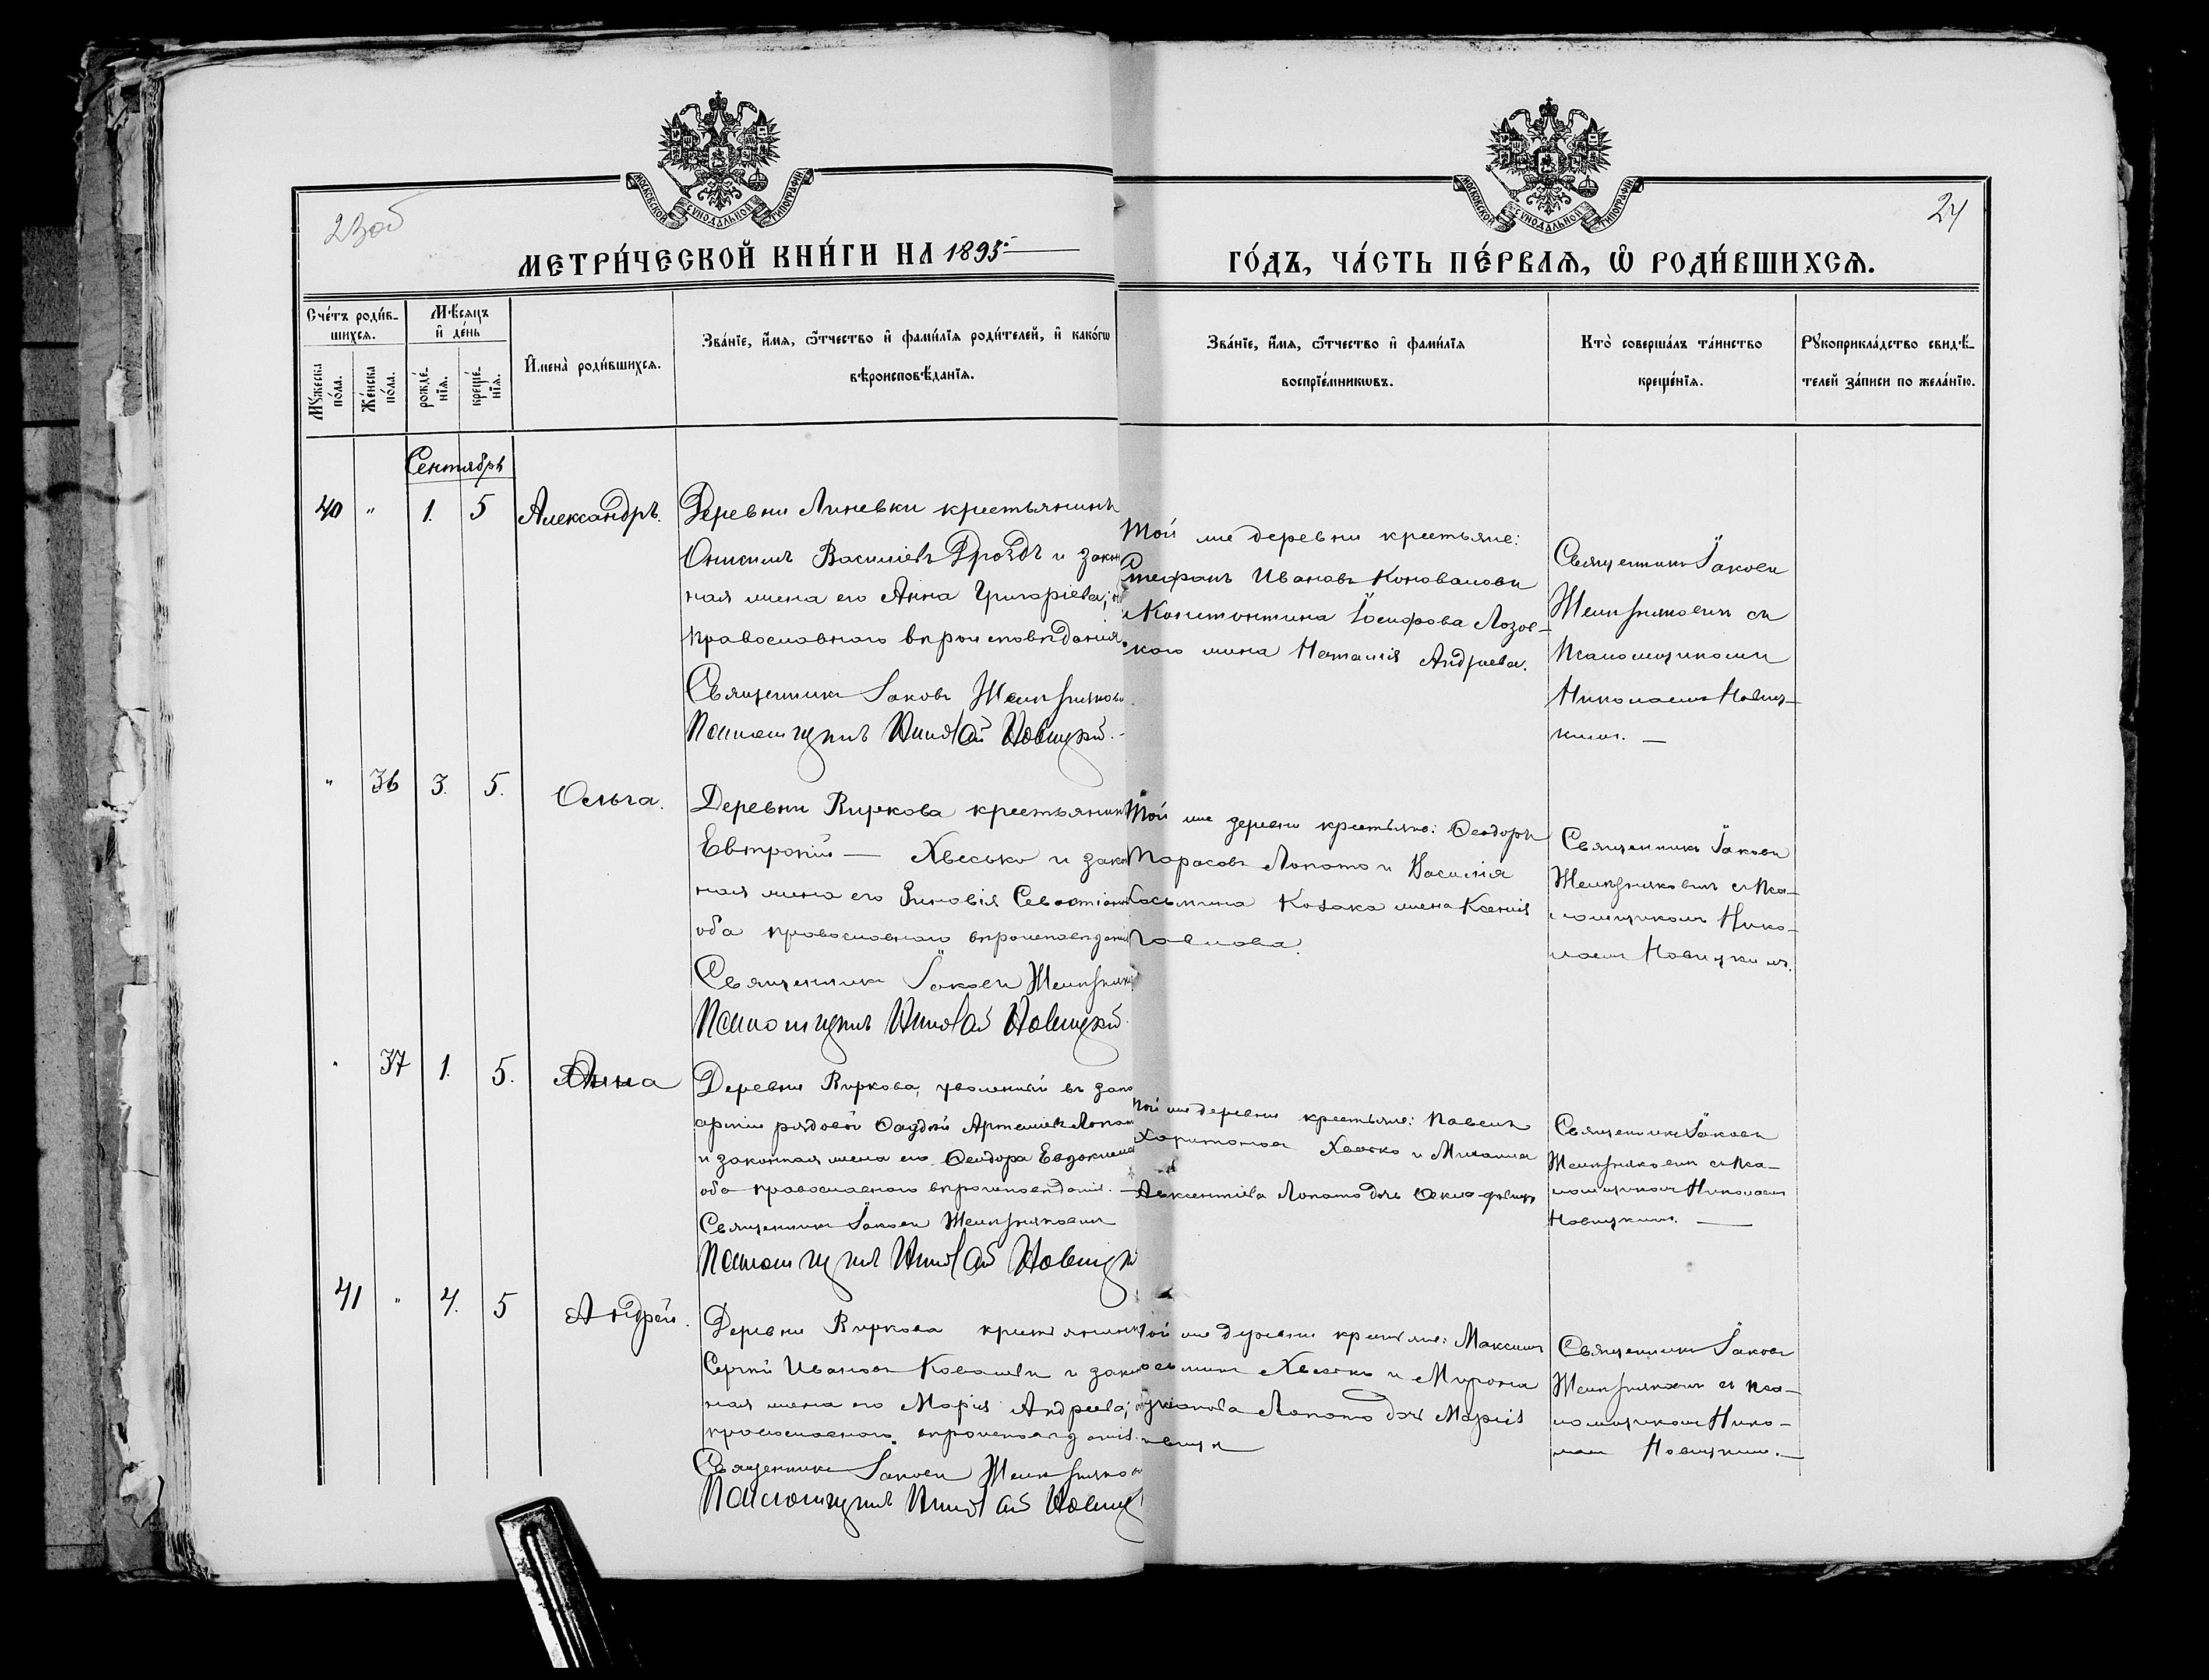 МОСКОВСКОЙ СѴНОДАЛЬНОЙ ТИПОГРАФІИ
МОСКОВСКОЙ СѴНОДАЛЬНОЙ ТИПОГРАФІИ
23об
24
МЕТРИ́ЧЕСКОЙ КНИ́ГИ НА 1895
ГО́ДЪ, ЧА́СТЬ ПЕ́РВАѦ, Ѡ҆ РОДИ́ВШИХСѦ.
Сче́тъ роди́в-
шихсѧ.
Мꙋ́жеска по́ла.
Же́нска по́ла.
Мѣ́сѧцъ
и҆ де́нь
рожде́-нїѧ.
креще́-нїѧ.
И҆мена̀ роди́вшихсѧ.
Зва́нїе, и҆́мѧ, ѻ҆́тчество и҆ фами́лїѧ роди́телей, и҆ како́гѡ
вѣроисповѣ́данїѧ.
Зва́нїе, и҆́мѧ, ѻ҆́тчество и҆ фами́лїѧ
воспрїе́мникѡвъ.
Кто̀ соверша́лъ та́инство
креще́нїѧ.
Рꙋкоприкла́дство свидѣ́-
телей за́писи по жела́нїю.
Сентябрь
40 " 1. 5 Александръ.
Деревни Линевки крестьянинъ
Онисимъ Василіевъ Дроздъ и закон
ная жена его Анна Григоріева;
православнаго вѣроисповѣданія
Священникъ Іаковъ
Псаломщикъ Николай Новицкій.
Той же деревни крестьяне:
Стефанъ Ивановъ Коноваловъ
и Константина Іосифова Лозов-
каго жена Наталія Андреева.
Священникъ Іаковъ
съ
Псаломщикомъ
Николаемъ Новиц-
кимъ. —
" 36 3. 5. Ольга.
Деревни Виркова крестьянинъ
Евтропій — Хвесько и закон
ная жена его Зиновія Севастіанова
оба православнаго вѣроисповѣданія
Священникъ Іаковъ
Псаломщикъ Николай Новицкій.
Той же деревни крестьяне: Ѳеодоръ
Тарасовъ Лопато и Василія
Косьмина Козака жена Ксенія
Павлова.
Священникъ Іаковъ
съ Пса-
ломщикомъ Нико-
лаемъ Новицкимъ.
" 37 1. 5. Анна
Деревни Виркова, уволенный въ запа
арміи рядовой Ѳаддей Артеміевъ Лопат
и законная жена его Ѳеодора Евдокимова
оба православнаго вѣроисповѣданія. —
Священникъ Іаковъ
Псаломщикъ Николай Новицкі
Той же деревни крестьяне: Павелъ
Харитоновъ Хвесько и
Авксентіева Лопато дочь
Священникъ Іаковъ
съ Пса-
ломщикомъ Николаемъ
Новицкимъ. —
41 " 4. 5 Андрей.
Деревни Виркова крестьянинъ
Сергій Ивановъ и закон
ная жена его Марія Андреева;
православнаго вѣроисповѣданія.
Священникъ Іаковъ
Псаломщикъ Николай Новицк
Той же деревни крестьяне: Максимъ
Косьминъ Хвесько и Мирона
Лопато дочь Марія
девица
Священникъ Іаковъ
съ Пса-
ломщикомъ Нико-
лаемъ Новицкимъ. —